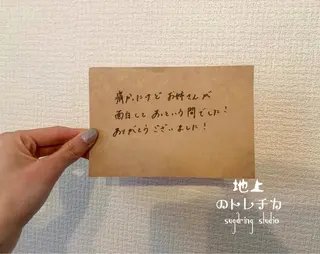 痛かったけど お姉さんが
面白しくて あっという間でした!
ありがとうございました!
地上
のトレチカ
sugaring studio